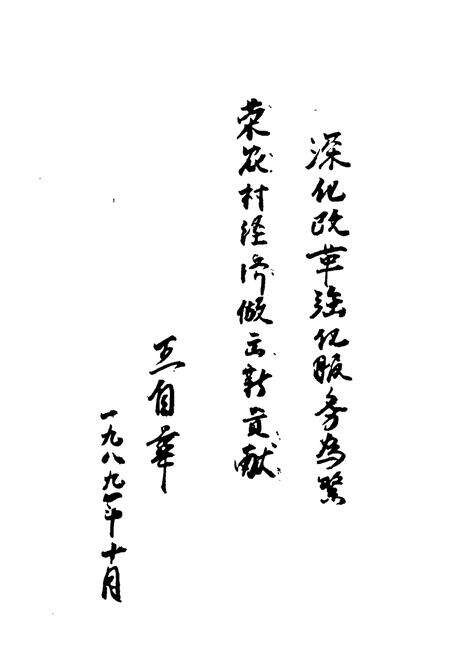 深化改革强化服务为繁
荣农村经济做出新贡献
王自华
一九八九年十月